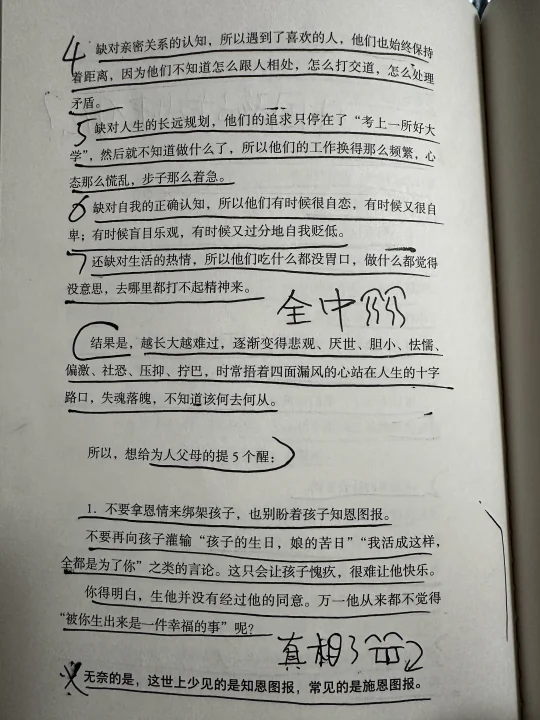 4 缺对亲密关系的认知，所以遇到了喜欢的人，他们也始终保持
着距离，因为他们不知道怎么跟人相处，怎么打交道，怎么处理
矛盾。
5 缺对人生的长远规划，他们的追求只停在了“考上一所好大
学”，然后就不知道做什么了，所以他们的工作换得那么频繁，心
态那么慌乱，步子那么着急。
6 缺对自我的正确认知，所以他们有时候很自恋，有时候又很自
卑；有时候盲目乐观，有时候又过分地自我贬低。
7 还缺对生活的热情，所以他们吃什么都没胃口，做什么都觉得
没意思，去哪里都打不起精神来。
全中
结果是，越长大越难过，逐渐变得悲观、厌世、胆小、怯懦、
偏激、社恐、压抑、拧巴，时常捂着四面漏风的心站在人生的十字
路口，失魂落魄，不知道该何去何从。
所以，想给为人父母的提 5 个醒：
1. 不要拿恩情来绑架孩子，也别盼着孩子知恩图报。
不要再向孩子灌输“孩子的生日，娘的苦日”“我活成这样，
全都是为了你”之类的言论。这只会让孩子愧疚，很难让他快乐。
你得明白，生他并没有经过他的同意。万一他从来都不觉得
“被你生出来是一件幸福的事”呢？
真相了
无奈的是，这世上少见的是知恩图报，常见的是施恩图报。